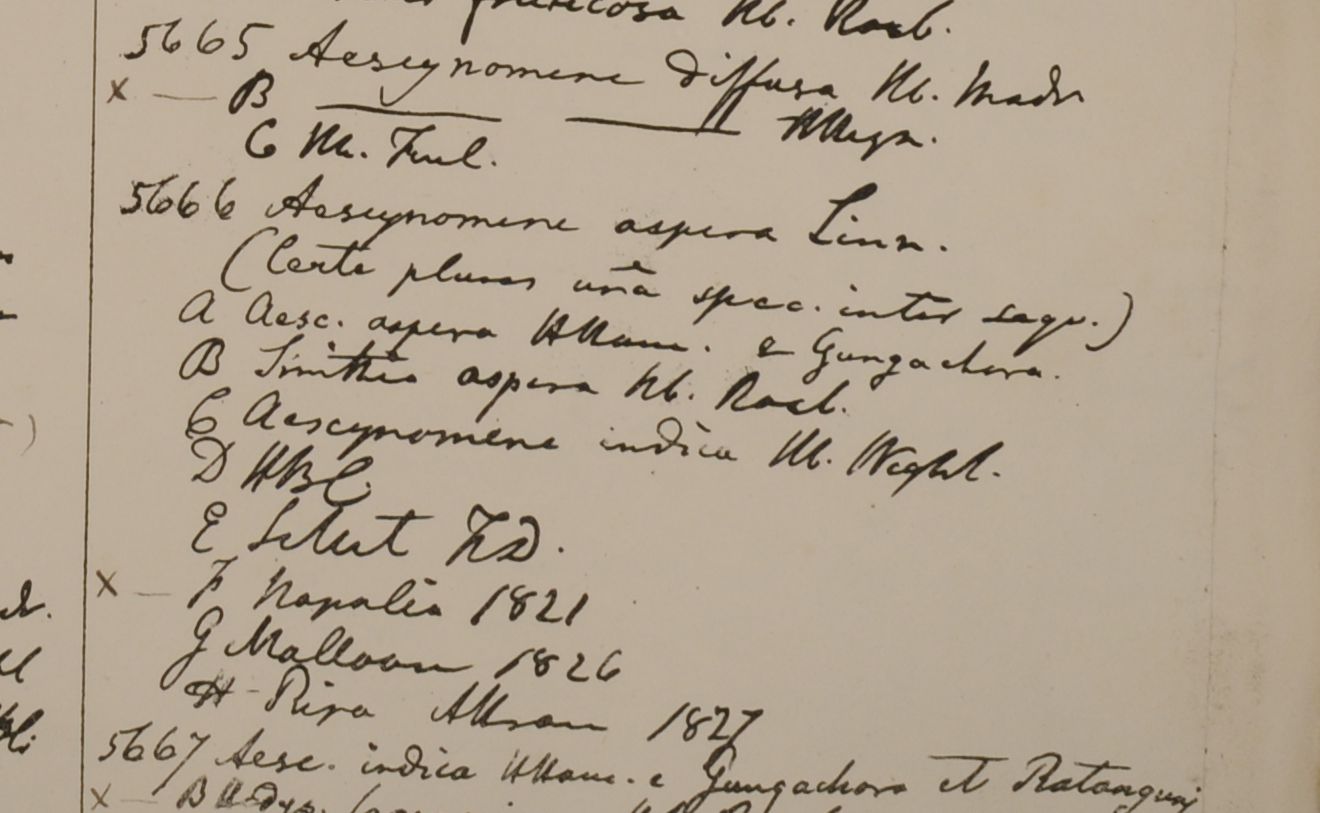 fruticosa Hb. Roxb.
5665 Aescynomene diffusa Hb. Madr
x — B —— —— HHeyn.
C Hb. Finl.
5666 Aescynomene aspera Linn.
(Certe plures unâ spec. inter sequ.)
A Aesc. aspera HHam. e Gungachora.
B Smithia aspera Hb. Roxb.
C Aescynomene indica Hb. Wight.
D HBC.
E Silhet FD.
x — F Napalia 1821
G Moalmain 1826
H Ripa 1827
5667 Aesc. indica HHam. e Gungachora et Ratangunj
x — B